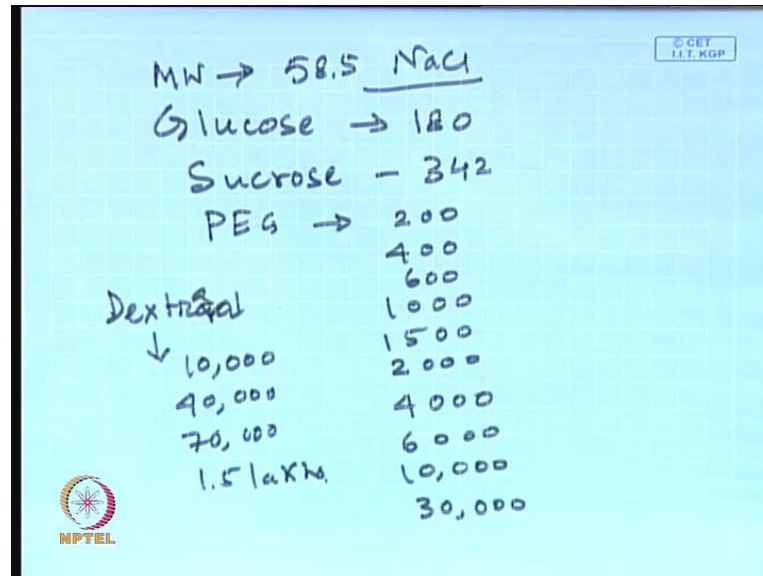 © CET
I.I.T. KGP
MW → 58.5 NaCl
Glucose → 180
Sucrose - 342
PEG → 200
400
600
1000
1500
2000
4000
6000
10,000
30,000
↓ 10,000
40,000
70,000
1.5 lakhs.
NPTEL